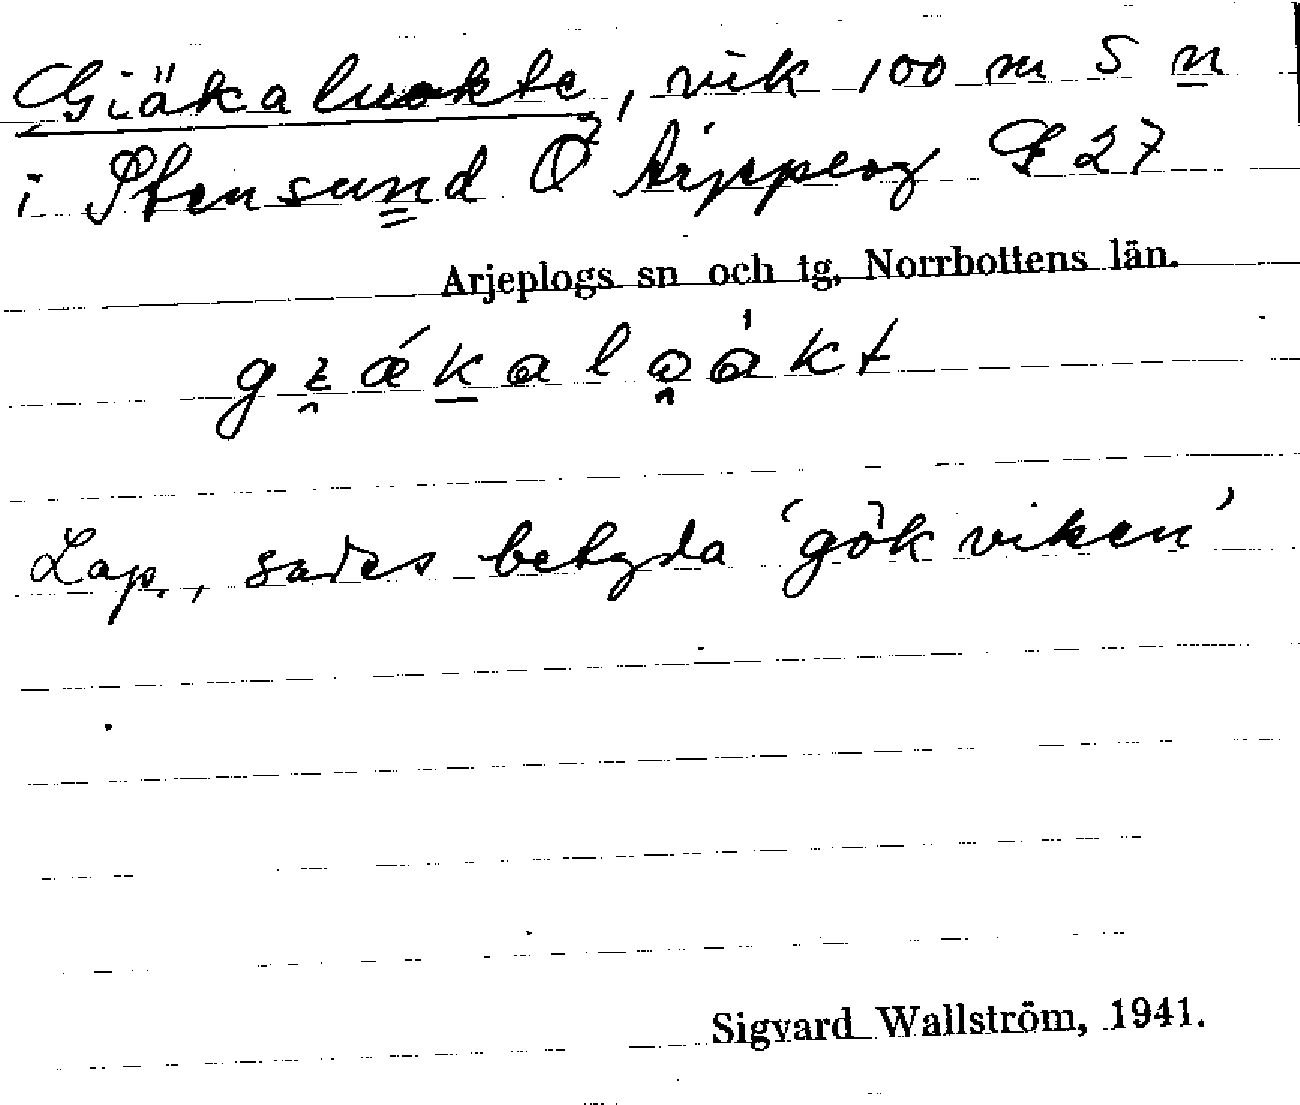 Giäkaluokte, vik 100 m S n
i Stensund Ö Arjeplog F 27
Arjeplogs sn och tg, Norrbottens län.
Lap., sades betyda 'gökviken'
Sigvard Wallström, 1941.